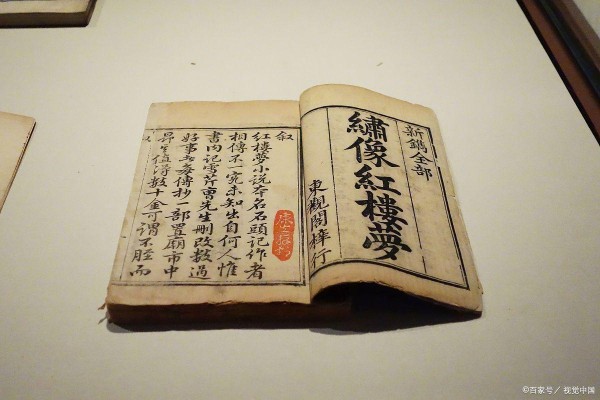 新鐫全部
繡像紅樓夢
東觀閣梓行
叙
紅樓夢小說本名石頭記作者
相傳不一究未知出自何人惟
書內記雪芹曹先生刪改數過
好事者每傳抄一部置廟市中
昂其值得數十金可謂不脛而
©百家号／视觉中国